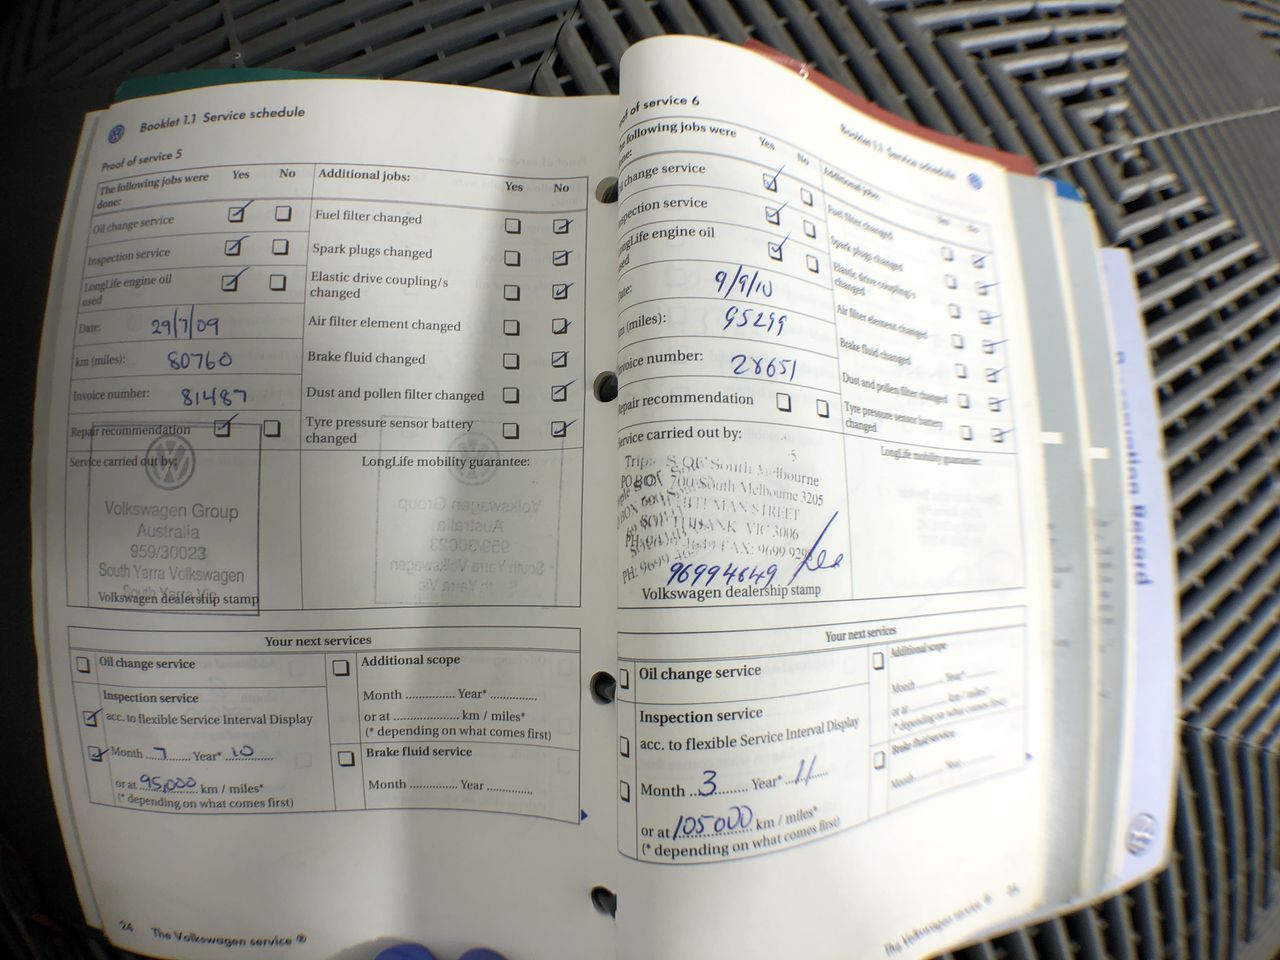 Booklet 1.1 Service schedule
Proof of service 5
The following jobs were done:
Yes No
Additional jobs:
Yes No
Oil change service
Inspection service
LongLife engine oil used
Date: 29/7/09
km (miles): 80760
Invoice number: 81487
Repair recommendation
Fuel filter changed
Spark plugs changed
Elastic drive coupling/s changed
Air filter element changed
Brake fluid changed
Dust and pollen filter changed
Tyre pressure sensor battery changed
Service carried out by:
LongLife mobility guarantee:
Volkswagen Group
Australia
959/30023
South Yarra Volkswagen
South Yarra Vic
Volkswagen dealership stamp
Your next services
Oil change service
Inspection service
acc. to flexible Service Interval Display
Month 7 Year* 10
or at 95,000 km / miles*
(* depending on what comes first)
Additional scope
Month ............. Year* .............
or at .................. km / miles*
(* depending on what comes first)
Brake fluid service
Month ............. Year .............
24 The Volkswagen service ®
of service 6
Booklet 1.1 Service schedule
following jobs were
Yes No
Additional jobs:
Yes No
change service
Inspection service
LongLife engine oil
9/9/10
km (miles): 95299
Invoice number: 28651
Repair recommendation
Fuel filter changed
Spark plugs changed
Elastic drive coupling/s changed
Air filter element changed
Brake fluid changed
Dust and pollen filter changed
Tyre pressure sensor battery changed
Service carried out by:
LongLife mobility guarantee:
South Melbourne
PO BOX 700 South Melbourne 3205
STREET
VIC 3006
FAX: 9699
PH: 9699
96994649
Volkswagen dealership stamp
Your next services
Oil change service
Inspection service
acc. to flexible Service Interval Display
Month 3 Year* 11
or at 105000 km / miles*
(* depending on what comes first)
Additional scope
Month ........ Year* ........
or at ........ km / miles*
(* depending on what comes first)
Brake fluid service
Month ........ Year ........
The Volkswagen service ®
Record